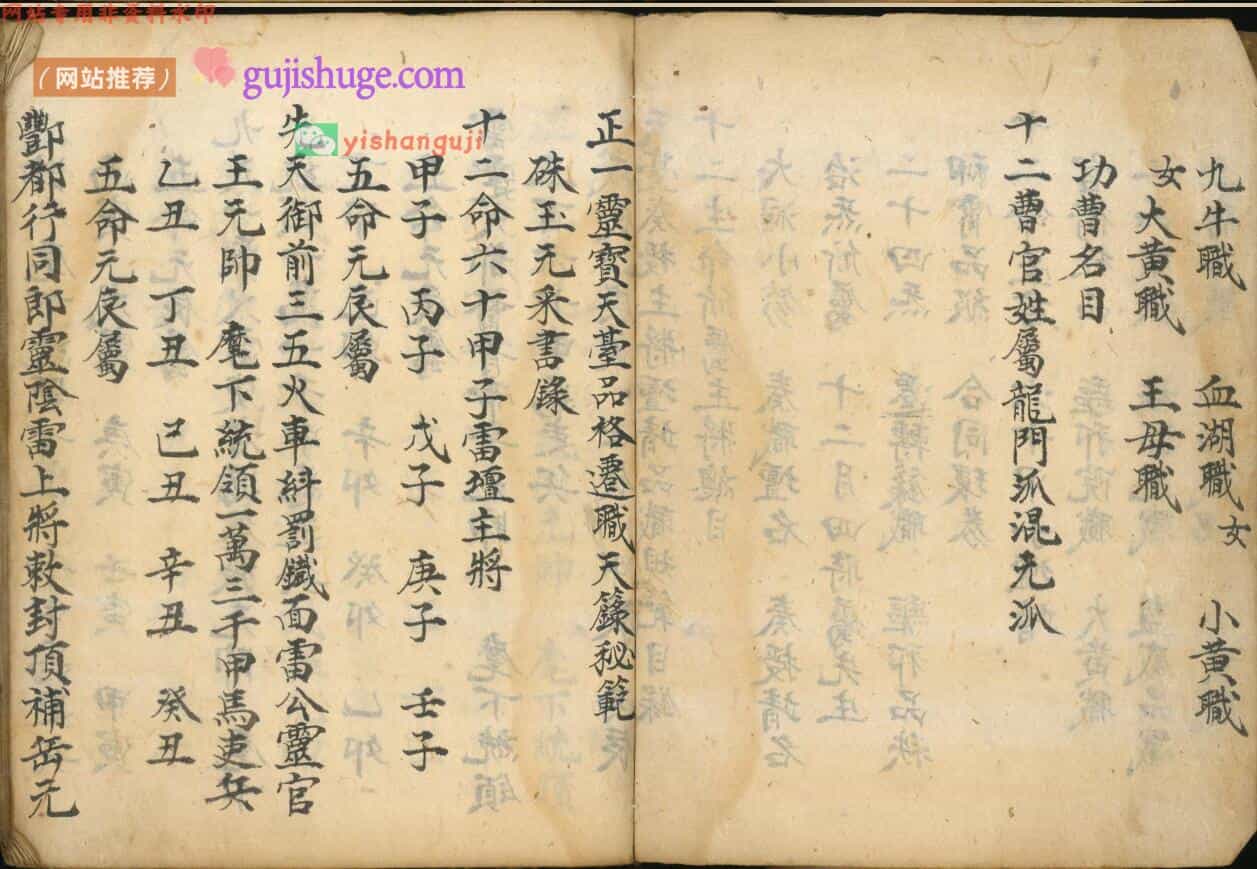 网站专用非资料水印
（网站推荐）
gujishuge.com
yishanguji
九牛職　血湖職女　小黃職
女大黃職　王母職
功曹名目
十二曹官姓屬龍門派混元派
正一靈寶天臺品格遷職天籙秘範
硃玉元釆書錄
十二命六十甲子雷壇主將
甲子　丙子　戊子　庚子　壬子
五命元辰屬
先天御前三五火車糾罰鐵面雷公靈官
王元帥　麾下統領一萬三千甲馬吏兵
乙丑　丁丑　己丑　辛丑　癸丑
五命元辰屬
酆都行同郎靈陰雷上將敕封頂補岳元